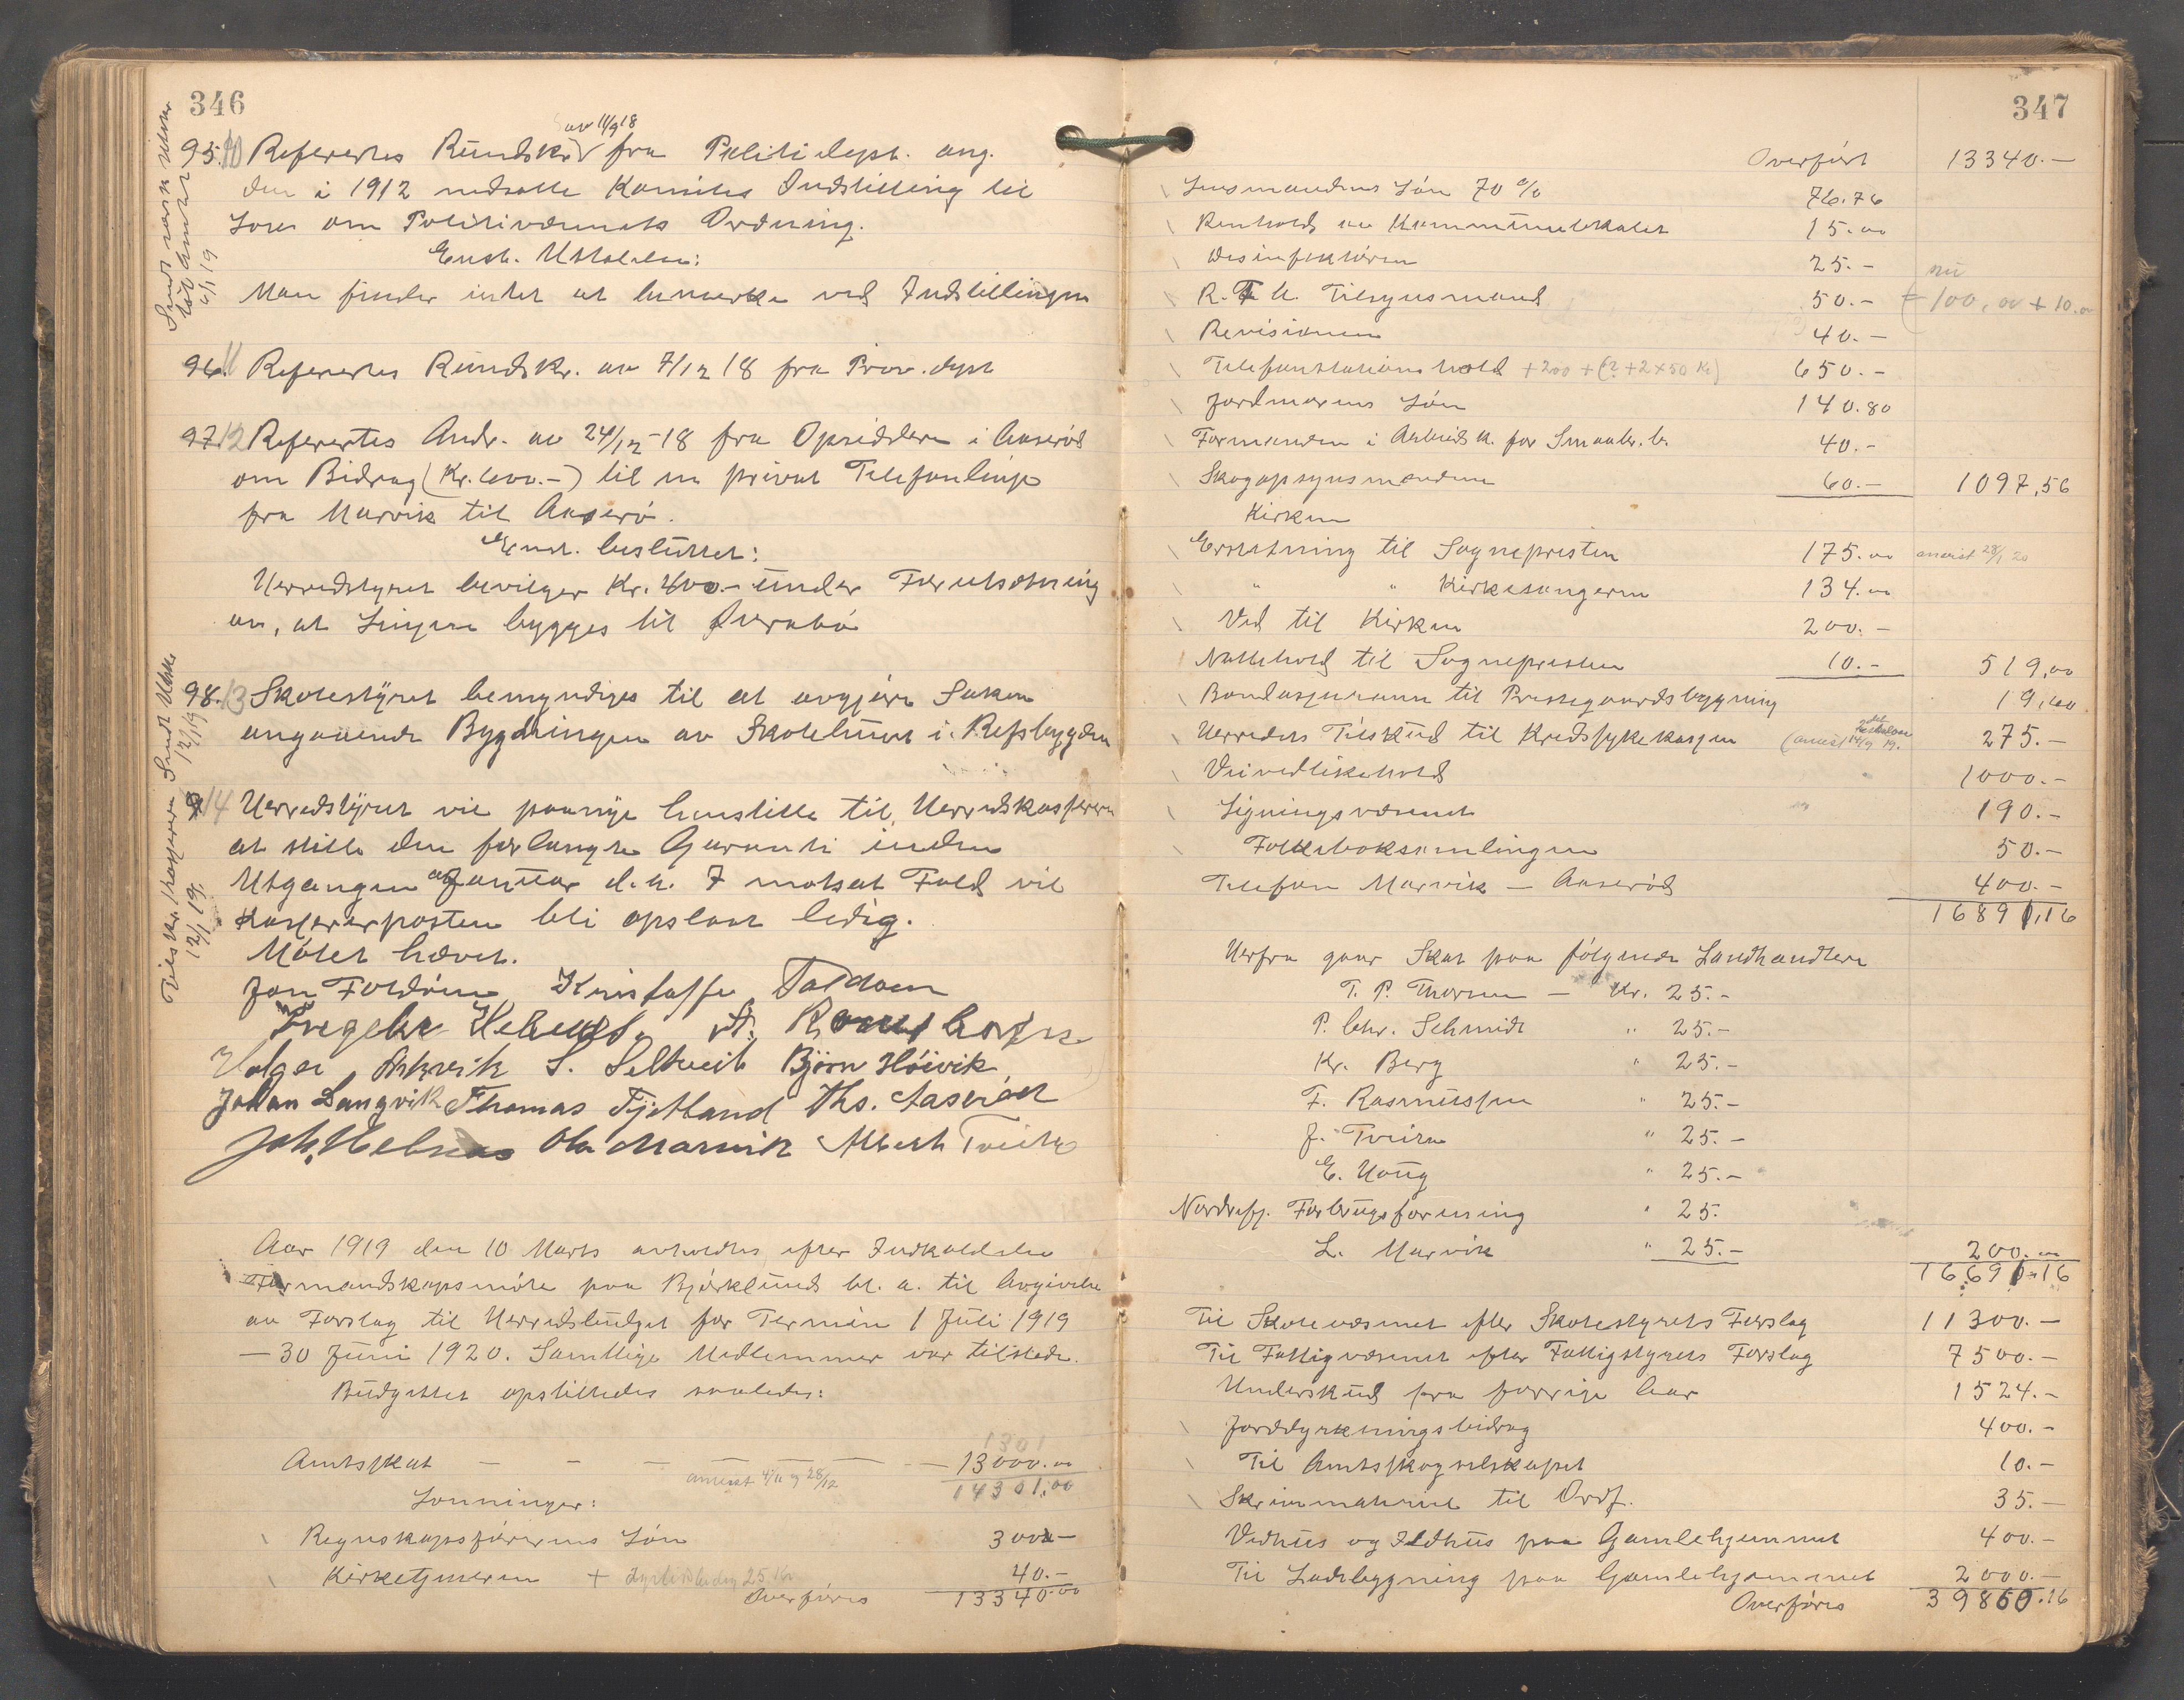 346
95. 10 Referertes Rundskr. av 11/9 18 fra Politidept. ang.
den i 1912 nedsatte Komites Indstilling til
Lov om Politivæsenets Ordning.
Enst. Uttalelse:
Man finder intet at bemærke ved Indstillingen
96. 11 Referertes Rundskr. av 7/12 18 fra Prov. dept
97. 12 Referertes Andr. av 24/12-18 fra Opsiddere i Aaserød
om Bidrag (Kr. 600.-) til en privat Telefonlinje
fra Marvik til Aaserø.
Enst. besluttet:
Herredstyret bevilger Kr. 400.- under Forutsætning
av, at Linjen bygges til Øverabø
98. 13 Skolestyret bemyndiges til at avgjøre Saken
angaaende Bygningen av Skolehuset i Refsbygden
14 Herredstyret vil paany henstille til Herredskassereren
at stille den forlangte Garanti inden
Utgangen av Januar d.a. I motsat Fald vil
Kassererposten bli opslaat ledig.
Møtet hævet.
Jon Foldøen Kristoffer Foldøen
Holger S. Seltveit Bjørn Høivik
Johan Langvik Thomas Tjetland Ths. Aaserød
Joh. Helsnes Ole Marvik Albert Tveite
Sendt
til Amtet
6/1 19
Sendt Utskr. 12/1 19
Tilskr. Kassereren
12/1 19.
Aar 1919 den 10 Marts avholdtes efter Indkaldelse
Formandskapsmøte paa Bjørklund bl. a. til Avgivelse
av Forslag til Herredsbudget for Termin 1 Juli 1919
- 30 Juni 1920. Samtlige Medlemmer var tilstede.
Budgettet opstilledes saaledes:
1301
Amtsskat — — — — — 13000.00
anvist 4/11 og 28/12 14301,00
Lønninger:
Regnskapsførerens Løn 300.-
Kirketjeneren + 25 Kr 40.-
Overføres 13340.00
347
Overført 13340.-
Lensmandens Løn 70 % 76.76
Renhold av Kommunelokalet 15.00
Desinfektøren 25.-
R. T. H. Tilsynsmand 50.- 100,00 + 10.00
Revisionen 40.-
Telefonstationshold +200 + (2 + 2 x 50 Kr) 650.-
Jordmorens Løn 140.80
Formanden i Arbeids k. for Smaabr. l. 40.-
Skogopsynsmanden 60.- 1097,56
Kirken
Erstatning til Sognepresten 175.00 anvist 28/1 20
" " Kirkesangeren 134.00
Ved til Kirken 200.-
Nattehold til Sognepresten 10.- 519,00
Bondasjuraen til Prestegaardsbygning 19,60
Herredets Tilskud til Kredssykekassen (anvist 14/9 19. 275.-
Veivedlikehold 1000.-
Ligningsvæsenet 190.-
Folkeboksamlingen 50.-
Telefon Marvik - Aaserød 400.-
16891,16
Herfra gaar Skat paa følgende Landhandlere
T. P. Thorsen — Kr. 25.-
P. Chr. Schmidt " 25.-
Kr. Berg " 25.-
F. Rasmussen " 25.-
J. Tveiten " 25.-
E. Haug " 25.-
Nordrefj. Forbrugsforening " 25.
L. Marvik " 25.- 200.00
16691.16
Til Skolevæsenet efter Skolestyrets Forslag 11300.-
Til Fattigvæsenet efter Fattigstyrets Forslag 7500.-
Underskud fra forrige Aar 1524.-
Jorddyrkningsbidrag 400.-
Til Amtsskogselskapet 10.-
Skrivmateriel til Ordf. 35.-
Vedhus og Ildhus paa Gamlehjemmet 400.-
Til Ladebygning paa Gamlehjemmet 2000.-
Overføres 39860.16